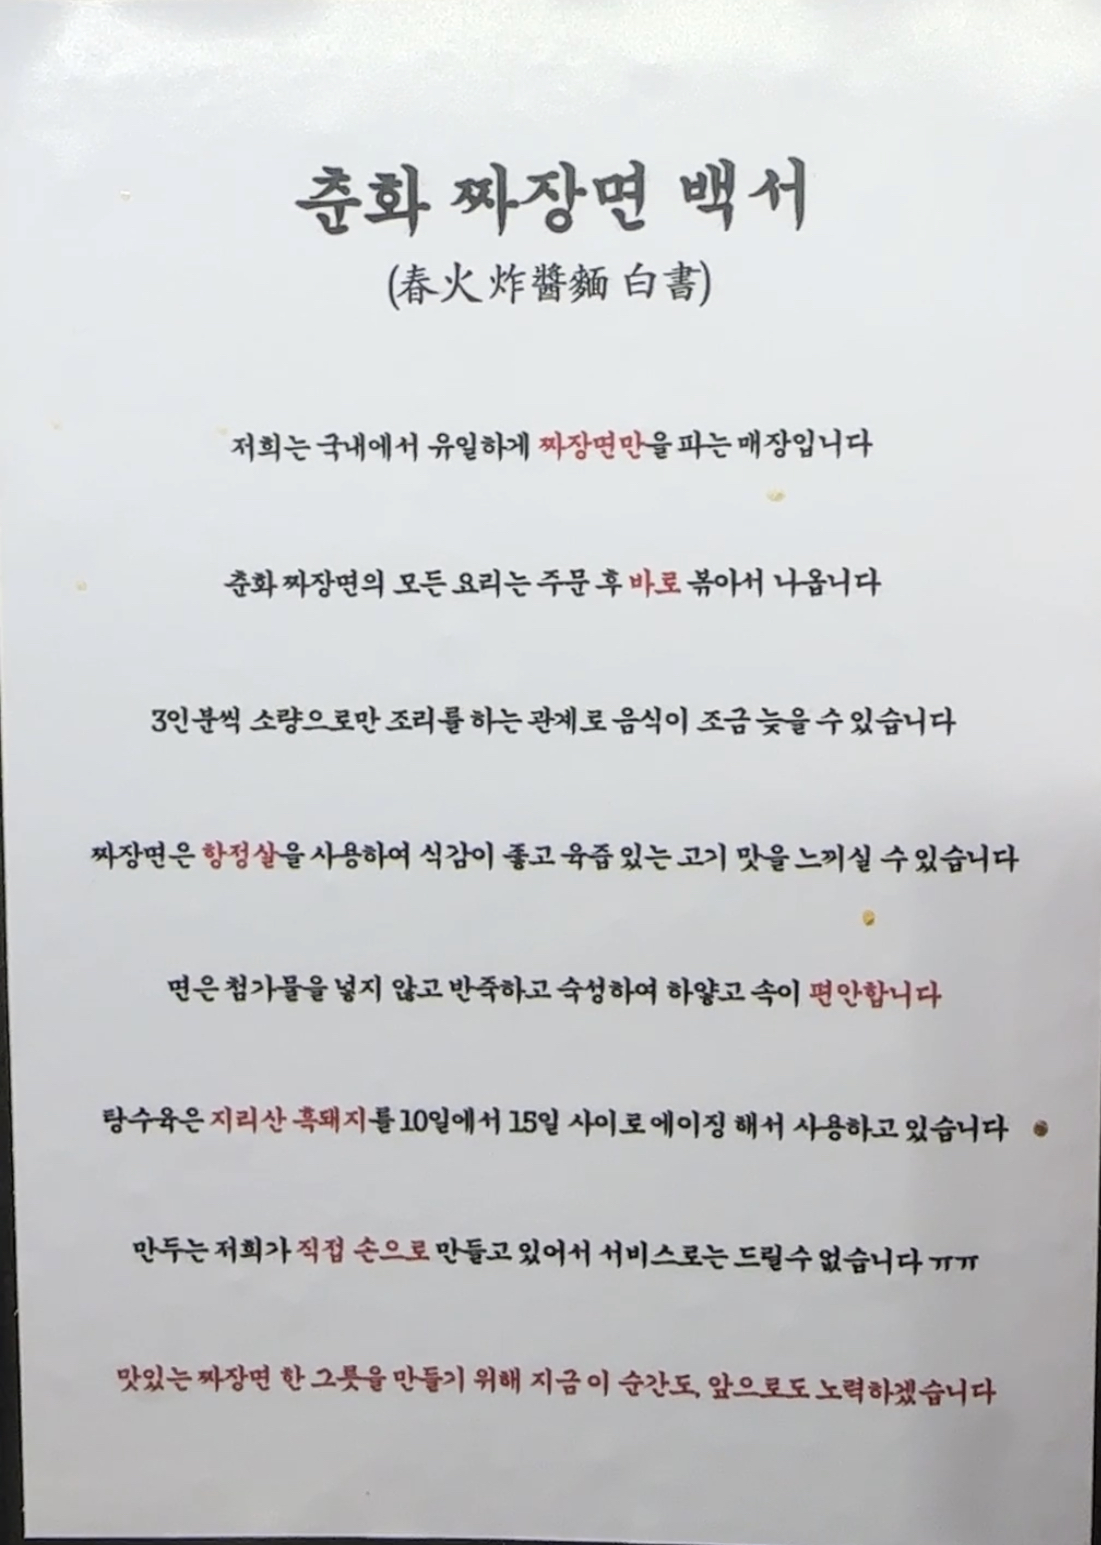 춘화 짜장면 백서
(春火 炸醬麵 白書)
저희는 국내에서 유일하게 짜장면만을 파는 매장입니다
춘화 짜장면의 모든 요리는 주문 후 바로 볶아서 나옵니다
3인분씩 소량으로만 조리를 하는 관계로 음식이 조금 늦을 수 있습니다
짜장면은 항정살을 사용하여 식감이 좋고 육즙 있는 고기 맛을 느끼실 수 있습니다
면은 첨가물을 넣지 않고 반죽하고 숙성하여 하얗고 속이 편안합니다
탕수육은 지리산 흑돼지를 10일에서 15일 사이로 에이징 해서 사용하고 있습니다
만두는 저희가 직접 손으로 만들고 있어서 서비스로는 드릴수 없습니다 ㅠㅠ
맛있는 짜장면 한 그릇을 만들기 위해 지금 이 순간도, 앞으로도 노력하겠습니다